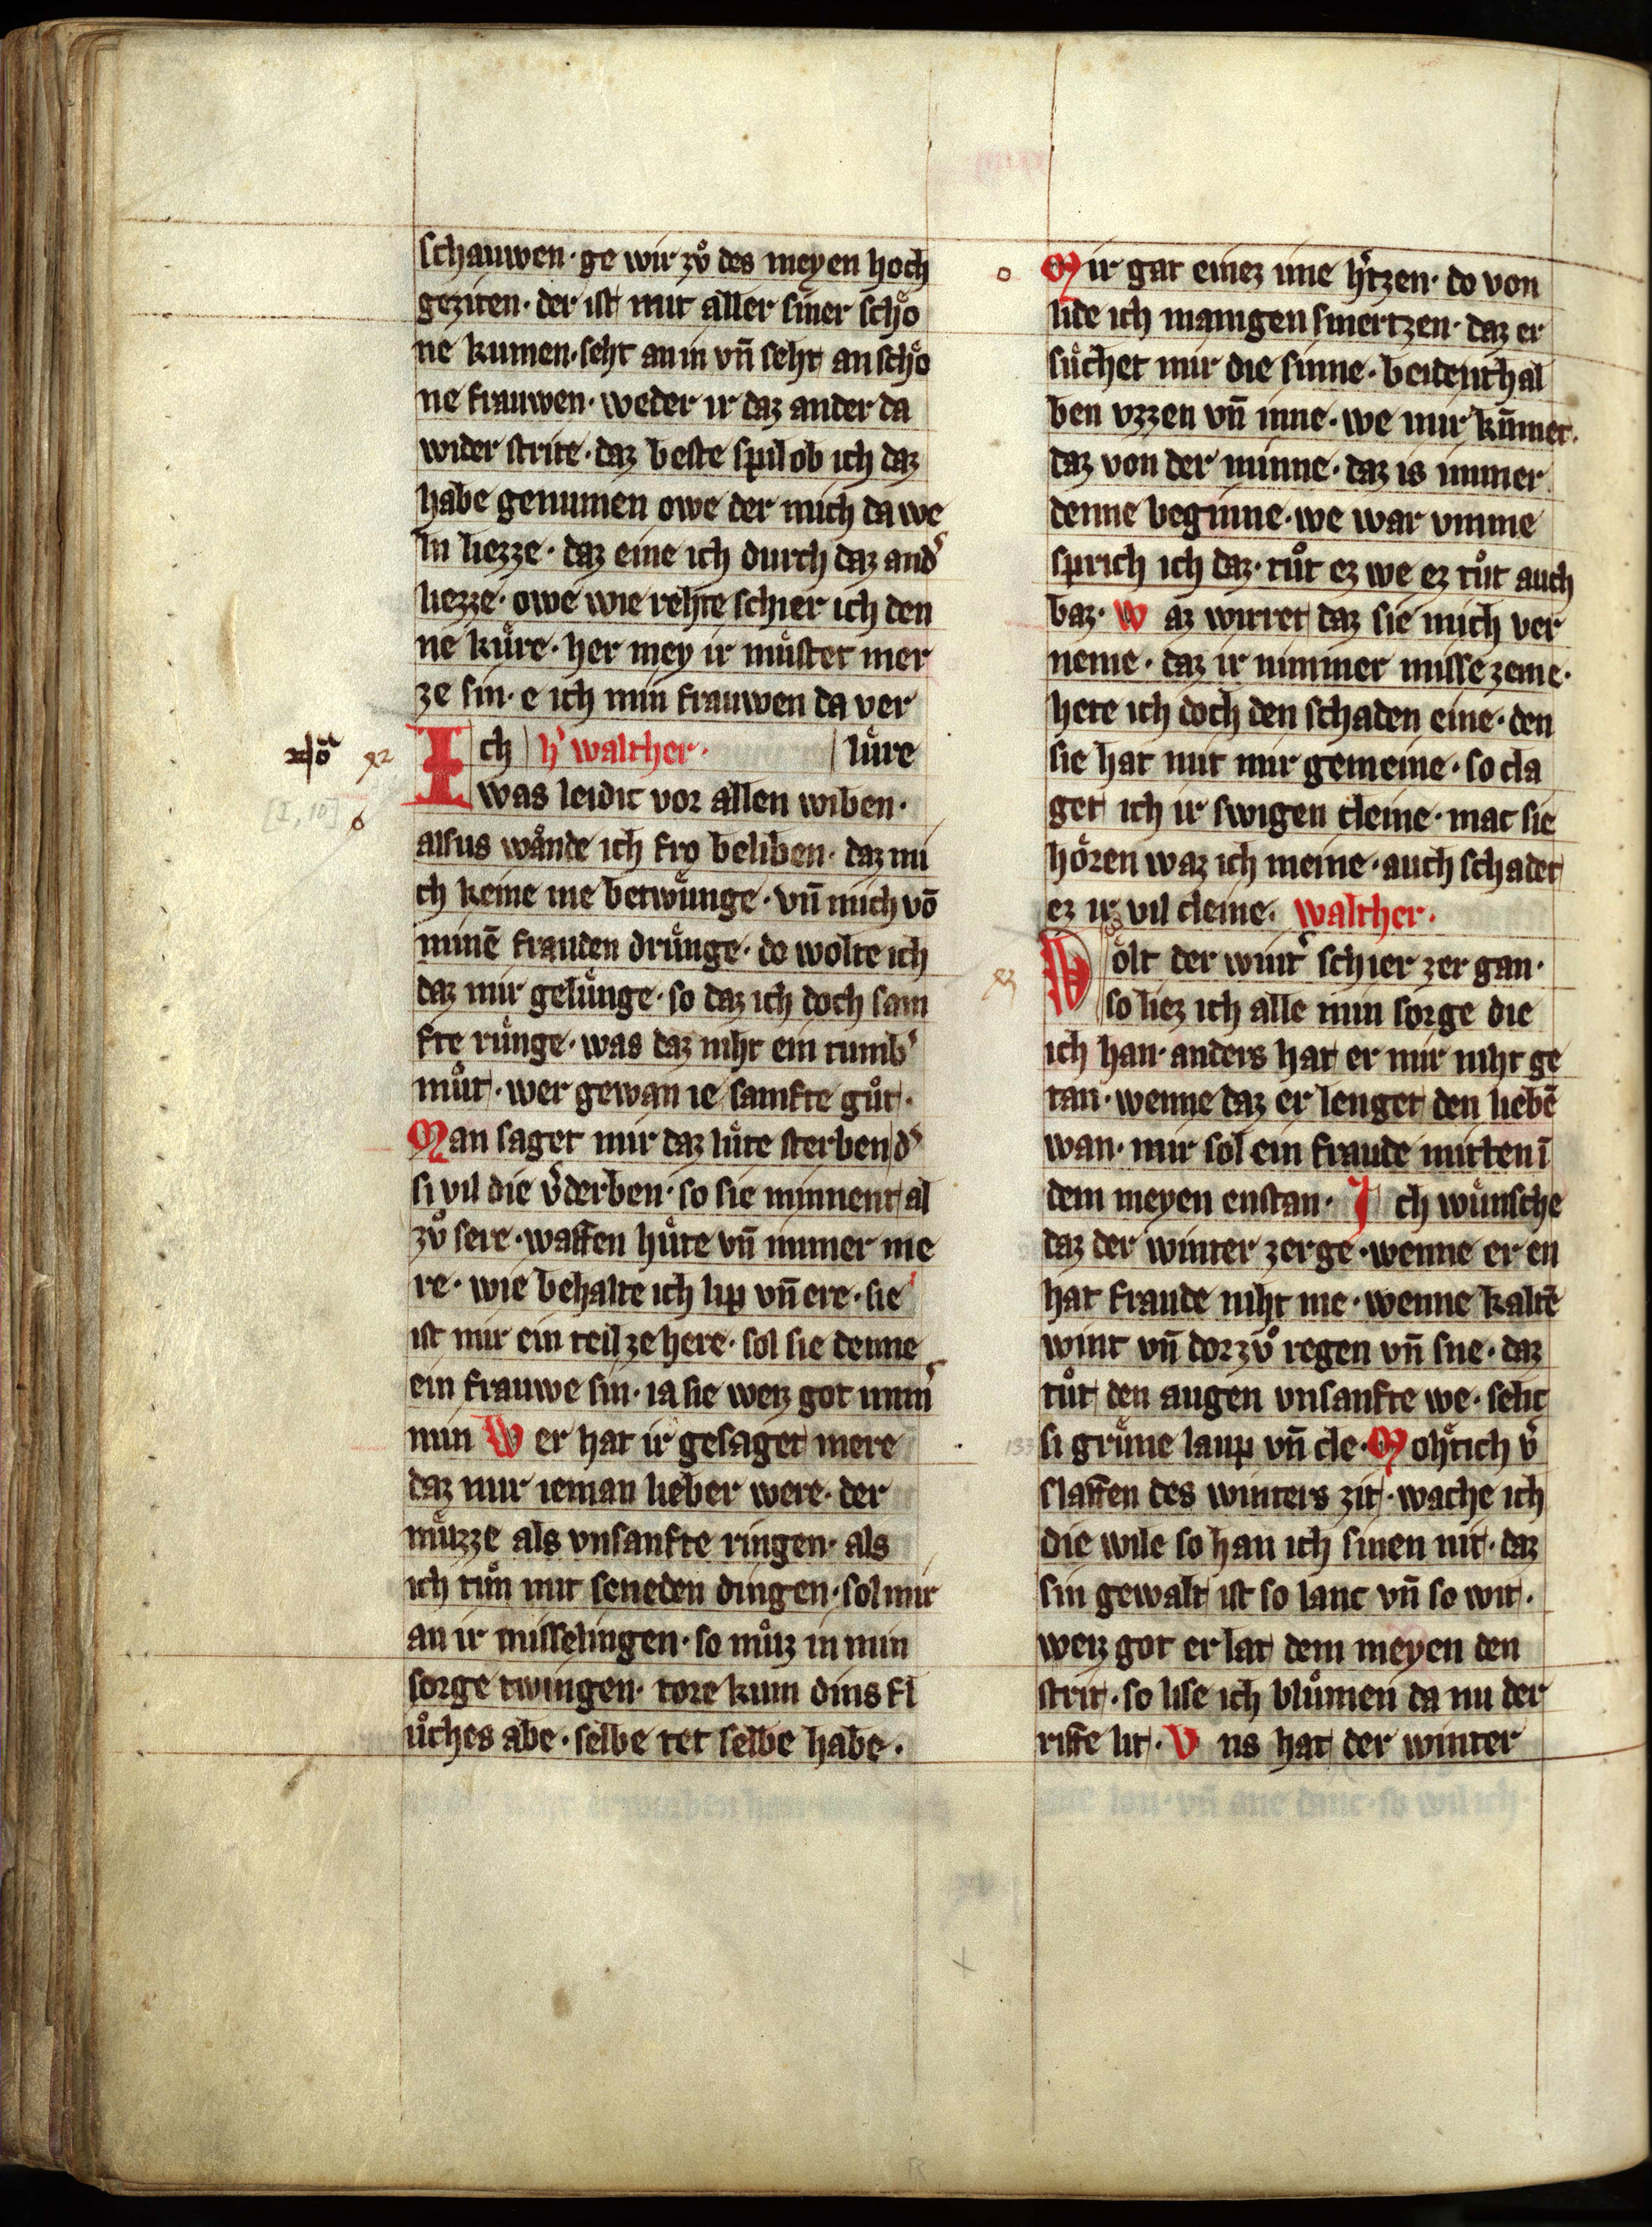 schauwen · ge wir zuͦ des meyen hoch
geziten · der ist mit aller siner schoͤ
ne kumen · seht an in vñ seht an schoͤ
ne frauwen · weder ir daz ander da
wider strite · daz beste spil ob ich daz
habe genumen owe der mich da we
ln liezze · daz eine ich durch daz and͛
liezze · owe wie rehte schier ich den
ne kuͤre · her mey ir muͤstet mer
ze sin · e ich min frauwen da ver
Ich h͛ walther · luͤre
was leidic vor allen wiben ·
alsus waͤnde ich fro beliben · daz mi
ch keine nie betwuͤnge · vñ mich vō
minē frauden druͤnge · do wolte ich
daz mir geluͤnge · so daz ich doch sam
fte ruͤnge · was daz niht ein tumb͛
muͦt · wer gewan ie samfte guͦt ·
Man saget mir daz luͤte sterben d͛
si vil die v͛derben · so sie minnent al
zuͦ sere · waffen huͤte vñ immer me
re · wie behalte ich lip vñ ere · sie
ist mir ein teil ze here · sol sie denne
ein frauwe sin · ia sie weiz got nim͛
min Wer hat ir gesaget mere
daz mir ieman lieber were · der
muͤzze als vnsanfte ringen · als
ich tuͦn mit seneden dingen · sol mir
an ir misselingen · so muͦz in min
sorge twingen · tore kum dins fl
uͦches abe · selbe tet selbe habe ·
Mir gat einez ime h͛tzen · do von
lide ich manigen smertzen · daz er
suͤchet mir die sinne · beidenthal
ben vzzen vñ inne · we mir kūmet ·
daz von der minne · daz is immer
denne beginne · we war vmme
sprich ich daz · tuͦt ez we ez tuͦt auch
baz · Waz wirret daz sie mich ver
neme · daz ir nimmer missezeme ·
hete ich doch den schaden eine · den
sie hat mit mir gemeine · so cla
get ich ir swigen cleine · mac sie
hoͤren waz ich meine · auch schadet
ez ir vil cleine · walther ·
Woͤlt der wint͛ schier zer gan ·
so liez ich alle min sorge die
ich han · anders hat er mir niht ge
tan · wenne daz er lenget den liebē
wan · mir sol ein fraude mitten ī
dem meyen enstan · Ich wuͤnsche
daz der winter zerge · wenne er en
hat fraude niht me · wenne kaltē
wint vñ dor zuͦ regen vñ sne · daz
tuͦt den augen vnsanfte we · seht
si gruͤne laup vñ cle · Moht ich v͛
slaffen des winters zit · wache ich
die wile so han ich sinen nit · daz
sin gewalt ist so lanc vñ so wit ·
weiz got er lat dem meyen den
strit · so lise ich bluͦmen da nu der
riffe lit · Vns hat der winter